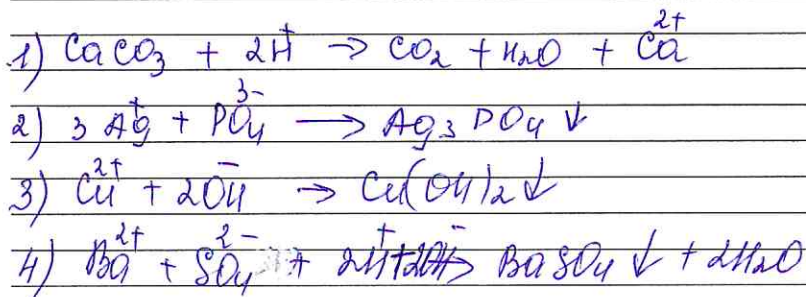 1) CaCO₃ + 2H⁺ → CO₂ + H₂O + Ca²⁺
2) 3Ag⁺ + PO₄³⁻ → Ag₃PO₄↓
3) Cu²⁺ + 2OH⁻ → Cu(OH)₂↓
4) Ba²⁺ + SO₄²⁻ + 2H⁺+2OH⁻→ BaSO₄↓ + 2H₂O